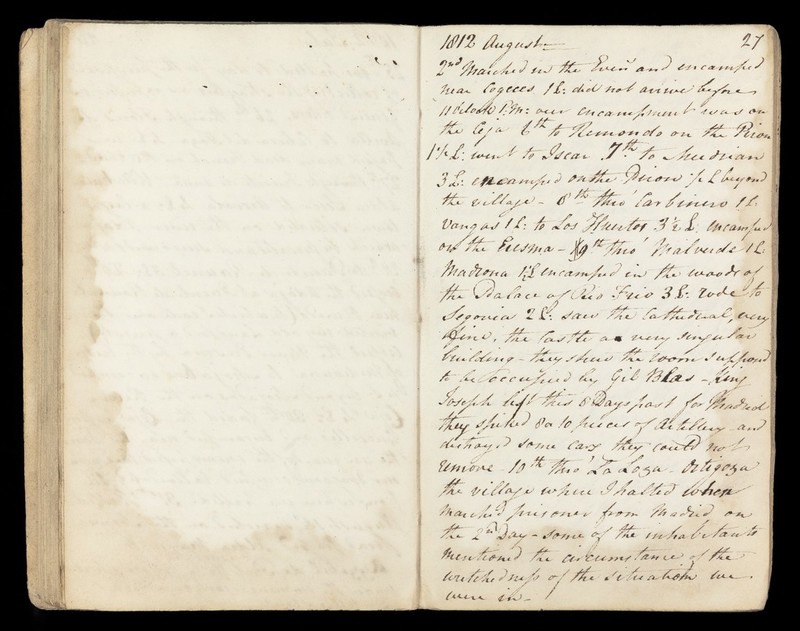 1812 August 27
2nd Marched in the Even and encamped
near Cogeces 1 L: did not arrive before
11 oClock P:M: our encampment was on
the Cega 6th to Remondo on the Piron
1½ L: went to Iscar 7th to
3 L: encamped on the Piron ½ L beyond
the village - 8th thro' Carbinero 1 L
Vangas 1 L: to Los Huertos 3½ L: encamped
on the Eresma - 9th thro' Malverde 1 L
Madrona 1½ L encamped in the woods of
the Palace of Rio Frio 3 L: rode to
Segovia 2 L: saw the Cathedral, very
fine, the Castle a very singular
building - they shew the room supposed
to be occupied by Gil Blas - King
Joseph left this 8 Days past for Madrid
they spiked 8 a 10 pieces of Artillery and
destroyd some cars they could not
remove - 10th thro' La Loza Ortigoza
the village where I halted when
marched prisoner from Madrid on
the 2nd Day - some of the inhabitants
mentioned the circumstance of the
wretchedness of the situation we
were in -